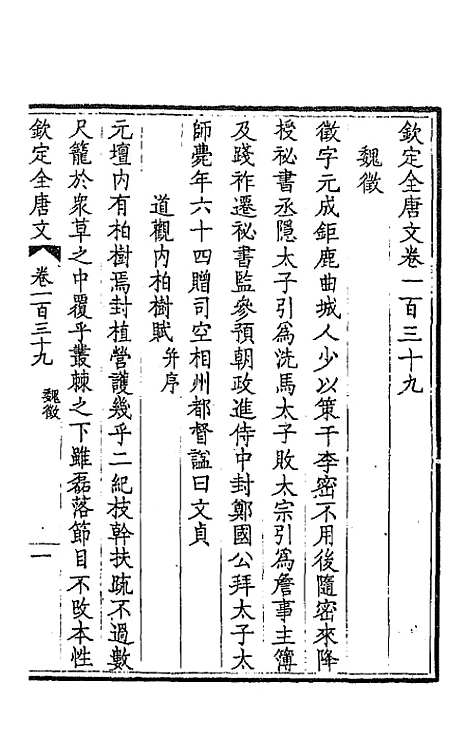 欽定全唐文卷一百三十九
魏徵
徵字元成鉅鹿曲城人少以策干李密不用後隨密來降
授祕書丞隱太子引爲洗馬太子敗太宗引爲詹事主簿
及踐祚遷祕書監參預朝政進侍中封鄭國公拜太子太
師薨年六十四贈司空相州都督諡曰文貞
道觀內柏樹賦 并序
元壇內有柏樹焉封植營護幾乎二紀枝幹扶疏不過數
尺籠於衆草之中覆乎叢棘之下雖磊落節目不改本性
欽定全唐文 卷一百三十九 魏徵 一